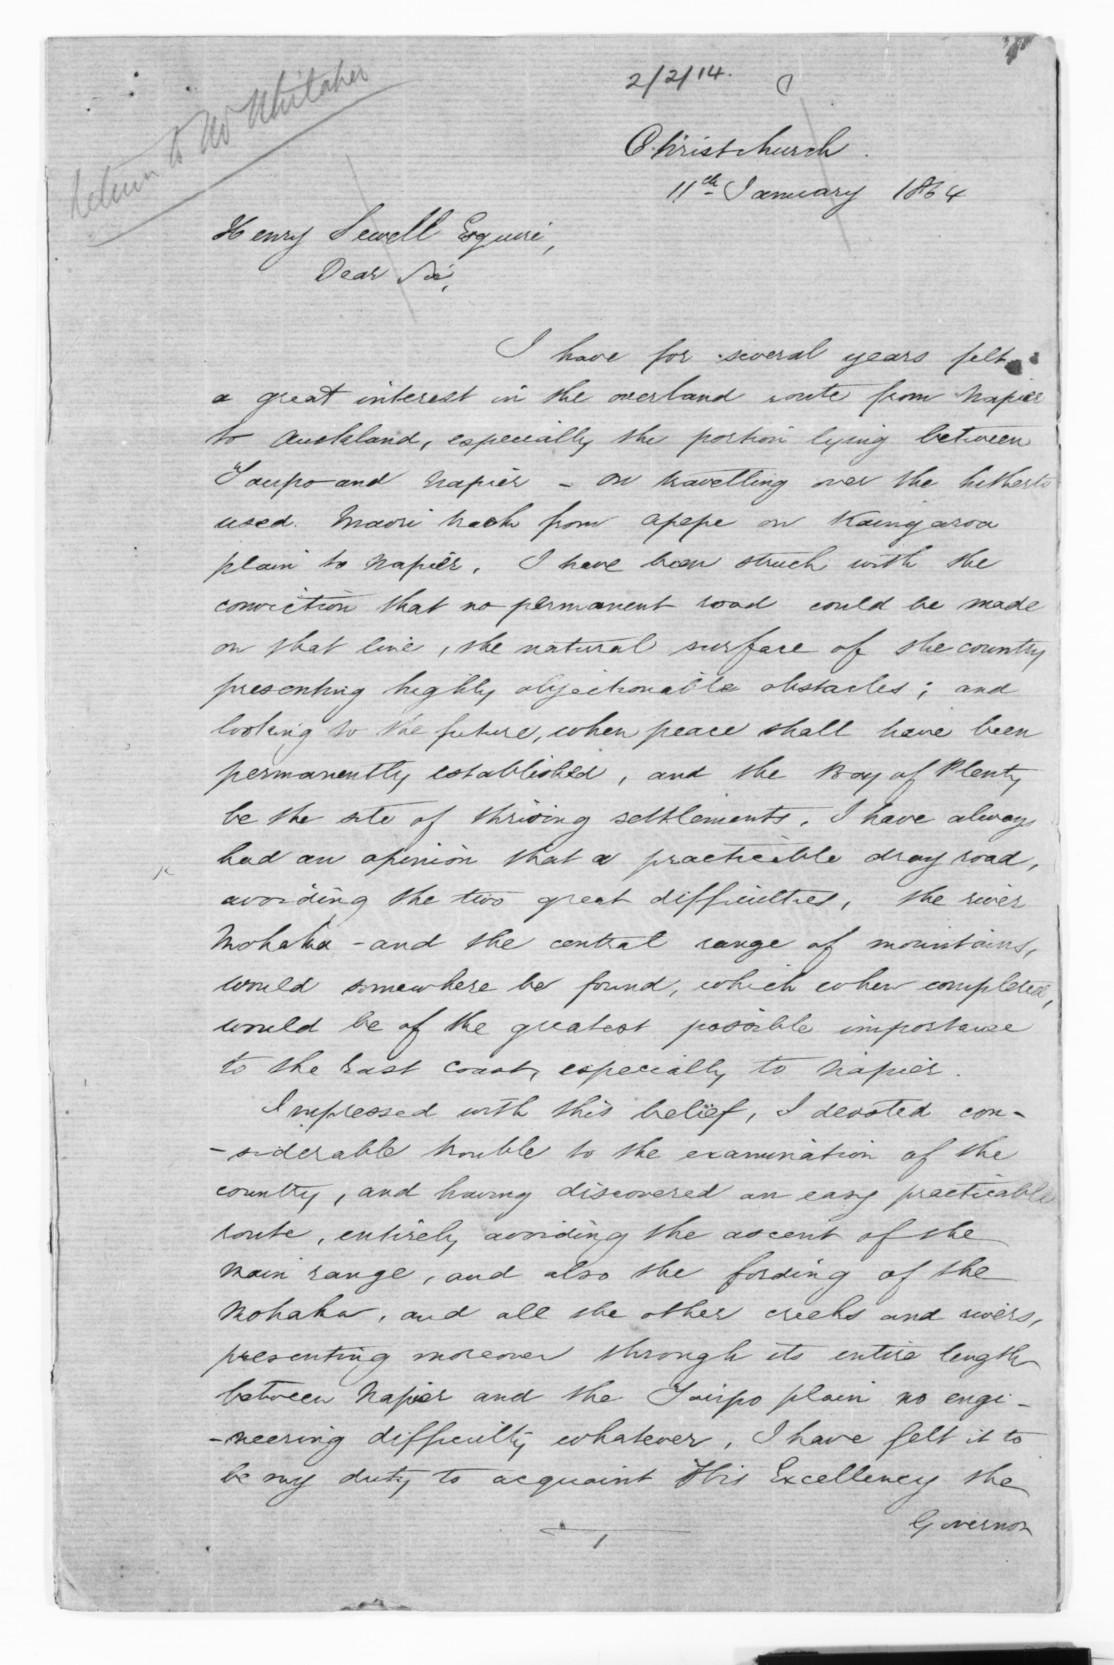 Return to Mr Whitaker
2/2/14.
Christchurch.
11th January 1864
Henry Sewell Esquire,
Dear Sir,
I have for several years felt
a great interest in the overland route from Napier
to Auckland, especially the portion lying between
Taupo and Napier - On travelling over the hitherto
used Maori track from Apepe on Kaingaroa
plain to Napier, I have been struck with the
conviction that no permanent road could be made
on that line, the natural surface of the country
presenting highly objectionable obstacles; and
looking to the future, when peace shall have been
permanently established, and the Bay of Plenty
be the site of thriving settlements, I have always
had an opinion that a practicable dray road,
avoiding the two great difficulties, the river
Mohaka - and the central range of mountains,
would somewhere be found, which when completed,
would be of the greatest possible importance
to the East Coast, especially to Napier.
Impressed with this belief, I devoted con-
-siderable trouble to the examination of the
country, and having discovered an easy practicable
route, entirely avoiding the ascent of the
main range, and also the fording of the
Mohaka, and all the other creeks and rivers,
presenting moreover through its entire length
between Napier and the Taupo plain no engi-
-neering difficulty whatever, I have felt it to
be my duty to acquaint His Excellency the
Governor
1